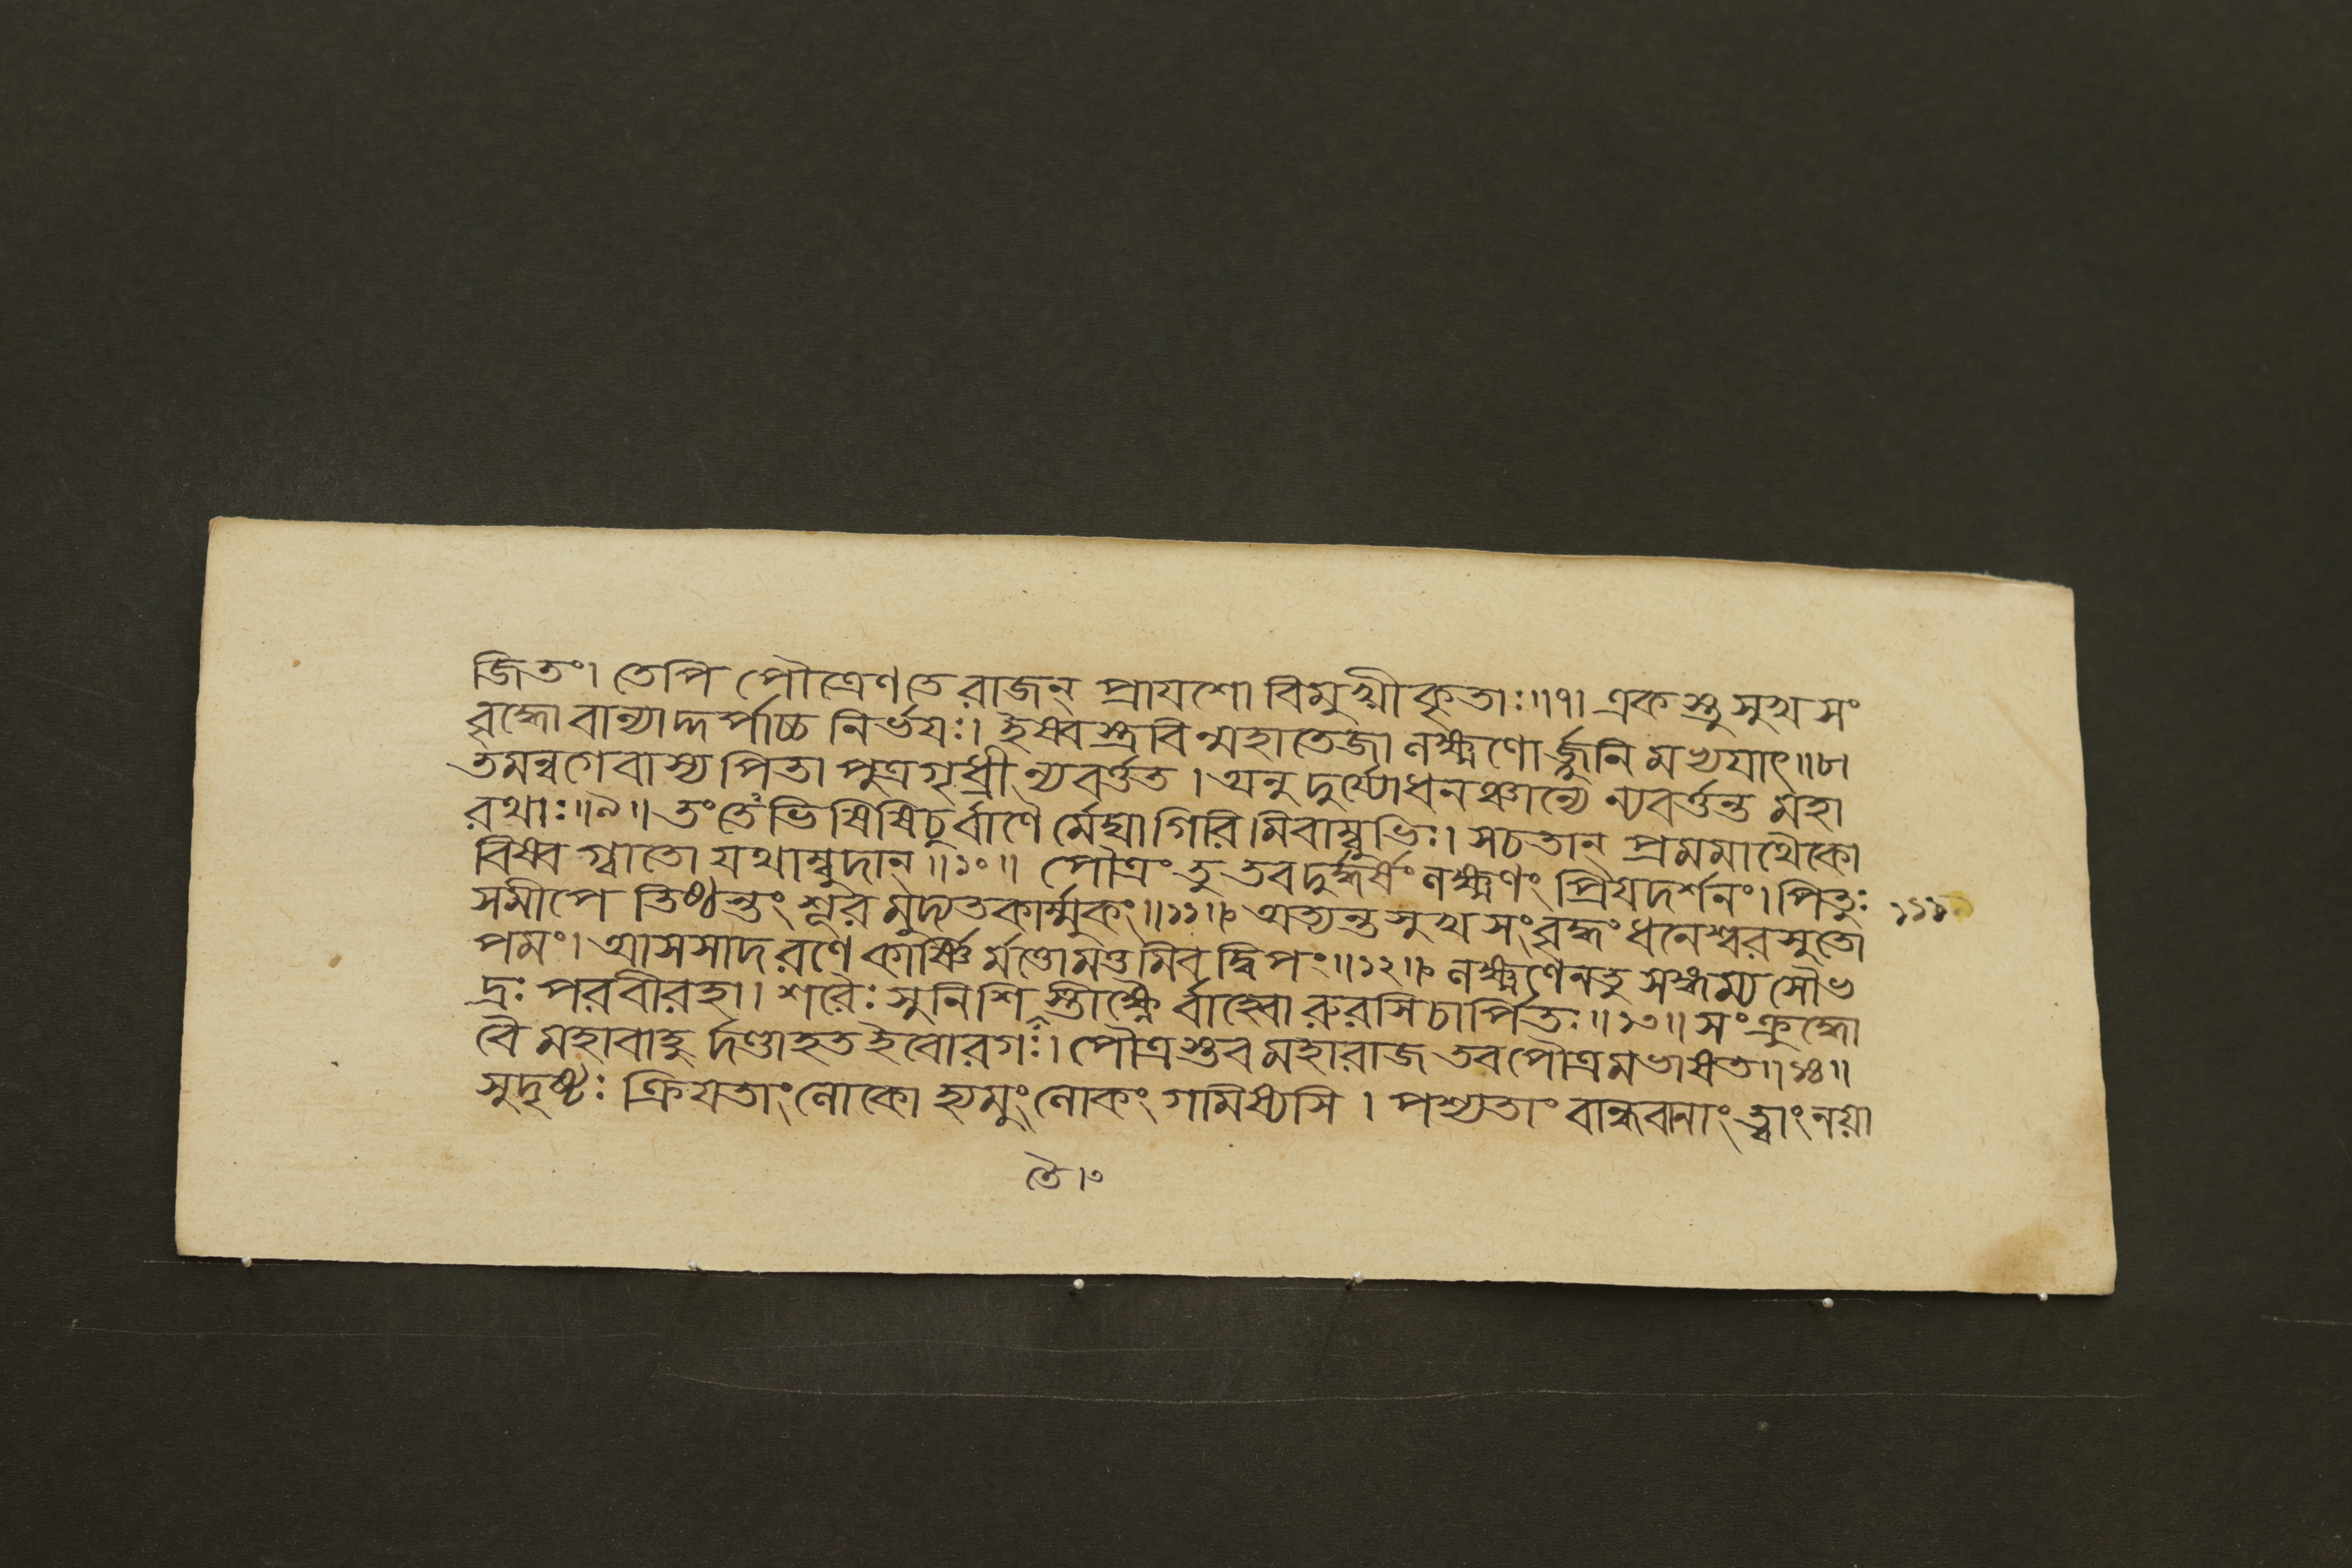 জিতং। তেপি পৌত্রেণ তে রাজন্ প্রাযশো বিমুখীকৃতাঃ॥৭। একস্তু সুখ সং
বৃদ্ধো বাল্যাদ্দর্পাচ্চ নির্ভযঃ। ইষ্বস্ত্রবিন্মহাতেজা লক্ষ্মণোর্জ্জুনিমভ্যযাৎ॥৮।
তমন্বগেবাস্য পিতা পুত্রগৃধ্রী ন্যবর্ত্তত। অনু দুর্য্যোধনঞ্চান্যে ন্যবর্ত্তন্ত মহা
রথাঃ॥৯॥ তং তেঽভিষিষিচুর্বাণৈ র্মেঘা গিরিমিবাম্বুভিঃ। স চ তান্ প্রমমাথৈকো
বিষ্বগ্বাতো যথাম্বুদান্॥১০॥ পৌত্রং তু তব দুর্দ্ধর্ষং লক্ষ্মণং প্রিযদর্শনং। পিতুঃ
সমীপে তিষ্ঠন্তং শূরমুদ্যতকার্ম্মুকং॥১১॥ অত্যন্ত সুখ সংবৃদ্ধং ধনেশ্বরসুতো
পমং। আসসাদ রণে কার্ষ্ণি র্মত্তো মত্তমিব দ্বিপং॥১২॥ লক্ষ্মণেন তু সঙ্গম্য সৌভ
দ্রঃ পরবীরহা। শরৈঃ সুনিশিতৈস্তীক্ষ্ণৈ র্বাহ্বোরুরসি চার্পিতঃ॥১৩॥ সংক্রুদ্ধো
বৈ মহাবাহু র্দণ্ডাহত ইবোরগঃ। পৌত্রস্তব মহারাজ তব পৌত্রমভাষত॥১৪॥
সুদৃষ্টঃ ক্রিযতাং লোকো হ্যমুং লোকং গমিষ্যসি। পশ্যতাং বান্ধবানাং ত্বাং নযা
১১১